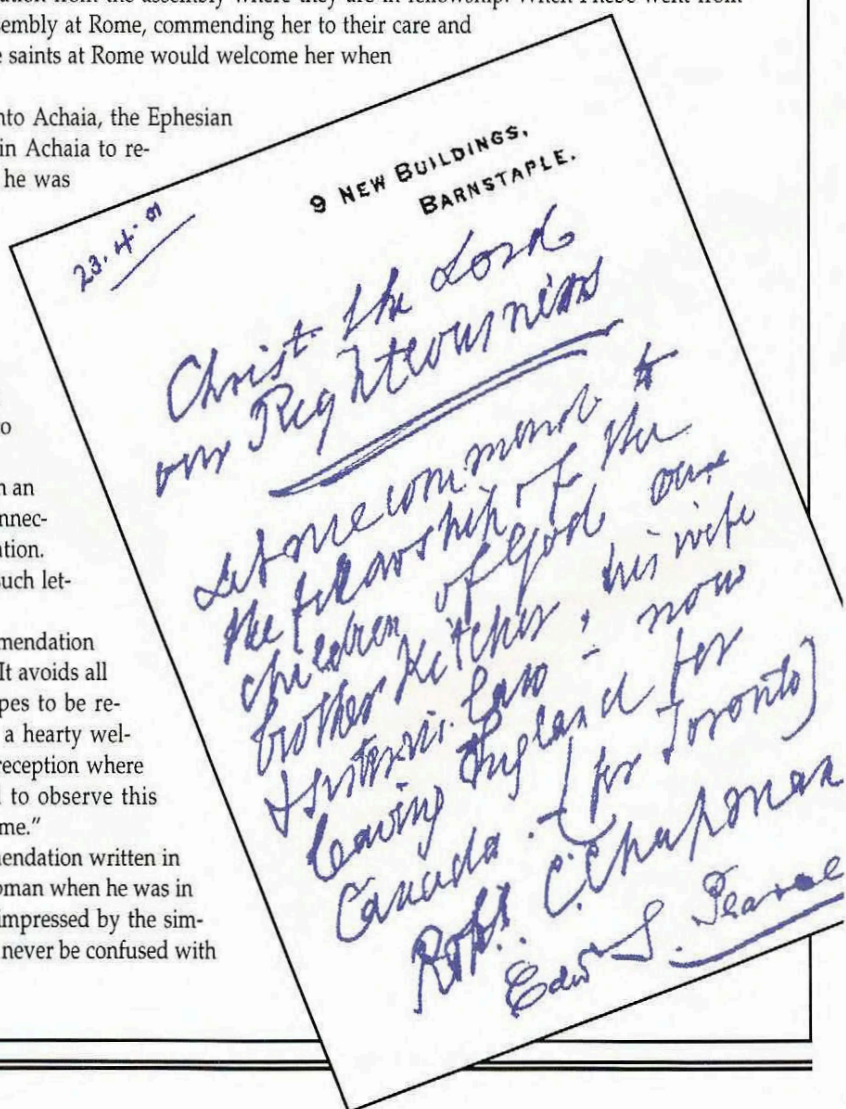 ation from the assembly where they are in fellowship. When Phebe went from
sembly at Rome, commending her to their care and
e saints at Rome would welcome her when
nto Achaia, the Ephesian
in Achaia to re-
he was
o
n an
nnec-
ation.
such let-
mendation
It avoids all
pes to be re-
a hearty wel-
reception where
l to observe this
me."
nendation written in
oman when he was in
impressed by the sim-
never be confused with
9 NEW BUILDINGS,
BARNSTAPLE.
23.4.01
Christ the Lord
our Righteousness
Let me commend to
the fellowship of the
children of God our
brother Kitcher, his wife
& sister in law - now
leaving England for
Canada. (for Toronto)
Robt. C. Chapman
Edwd S. Pearce